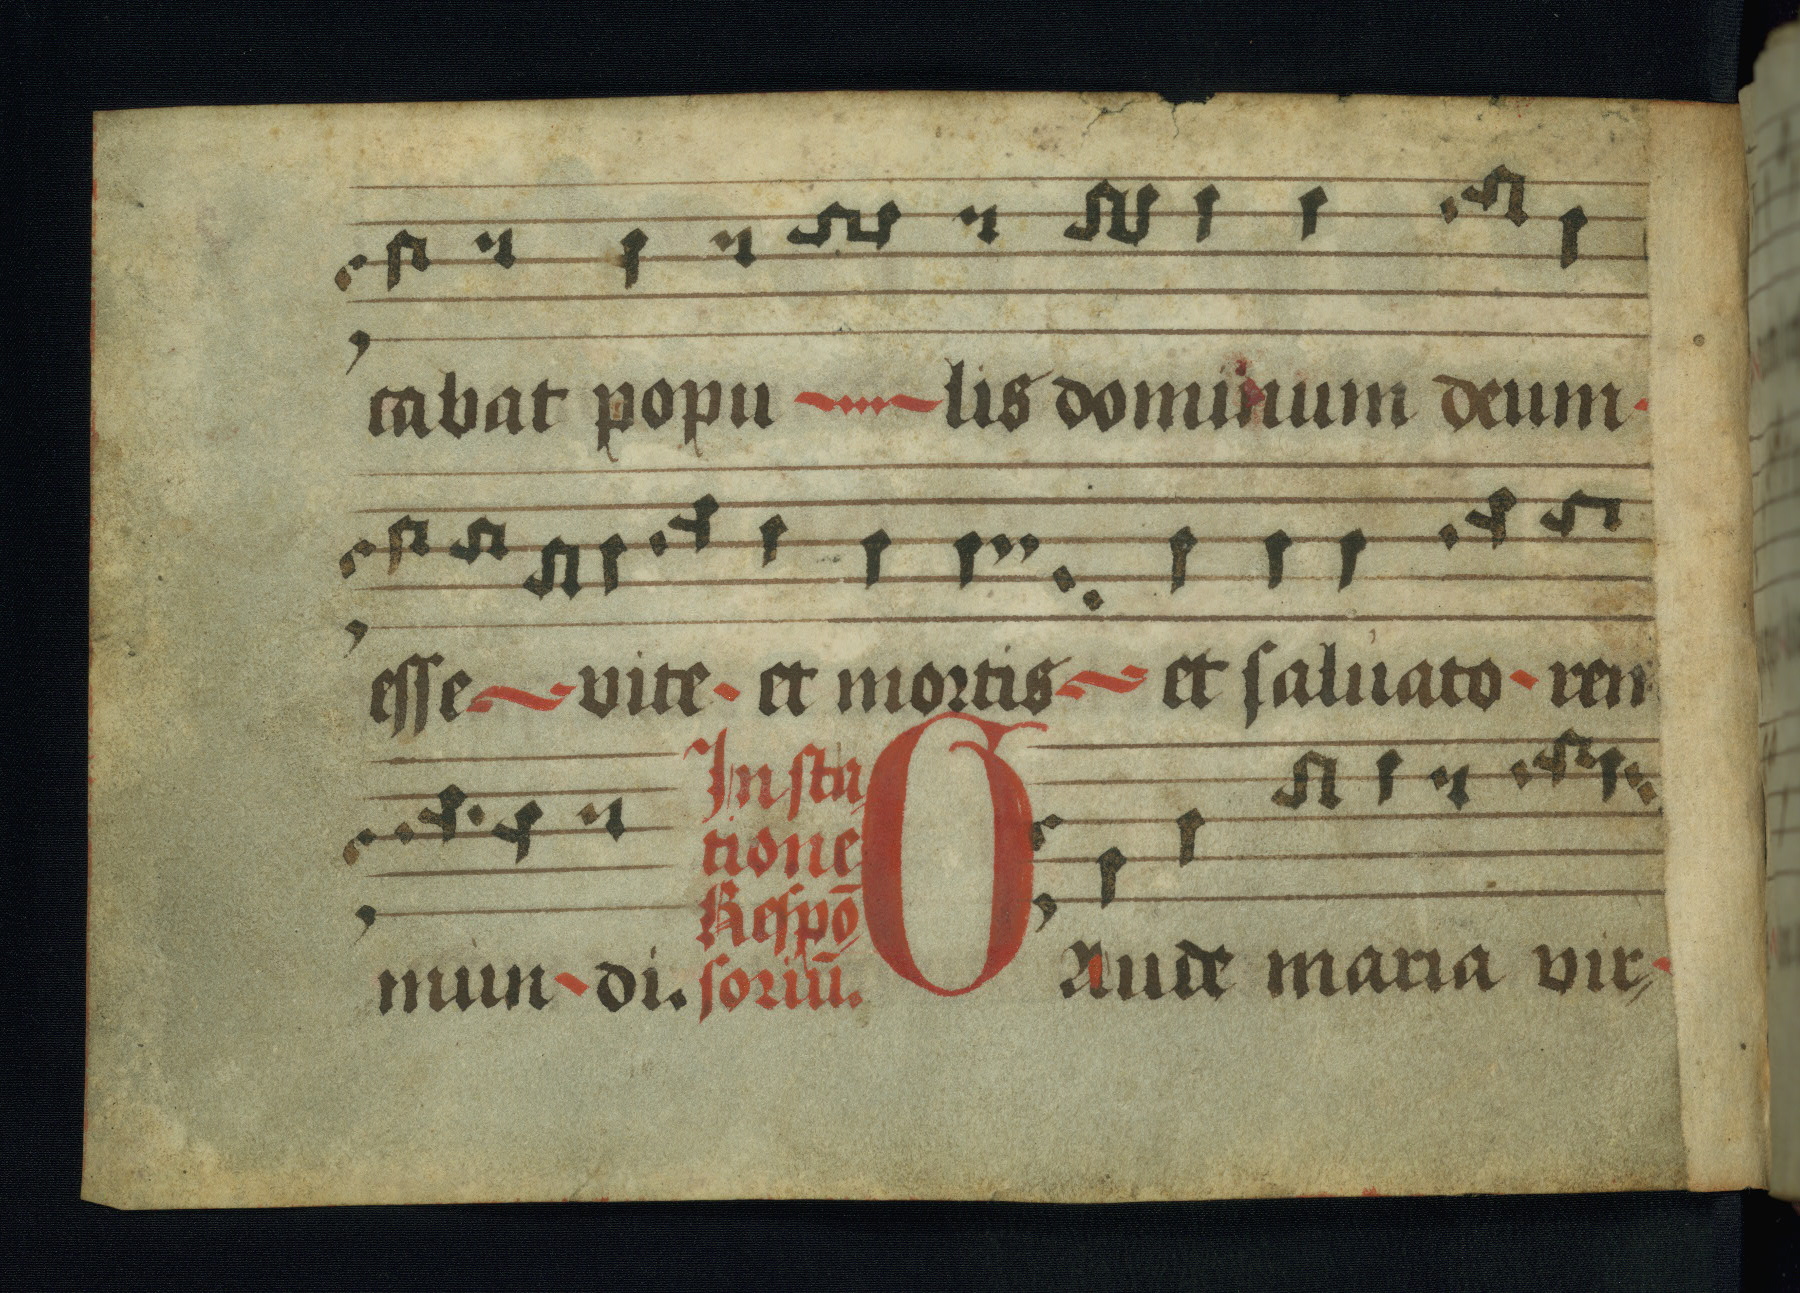 cabat popu lis dominum deum
esse vite et mortis et saluato ren
mun di. In sta
tione
Respō
soriū. G Aude maria vir